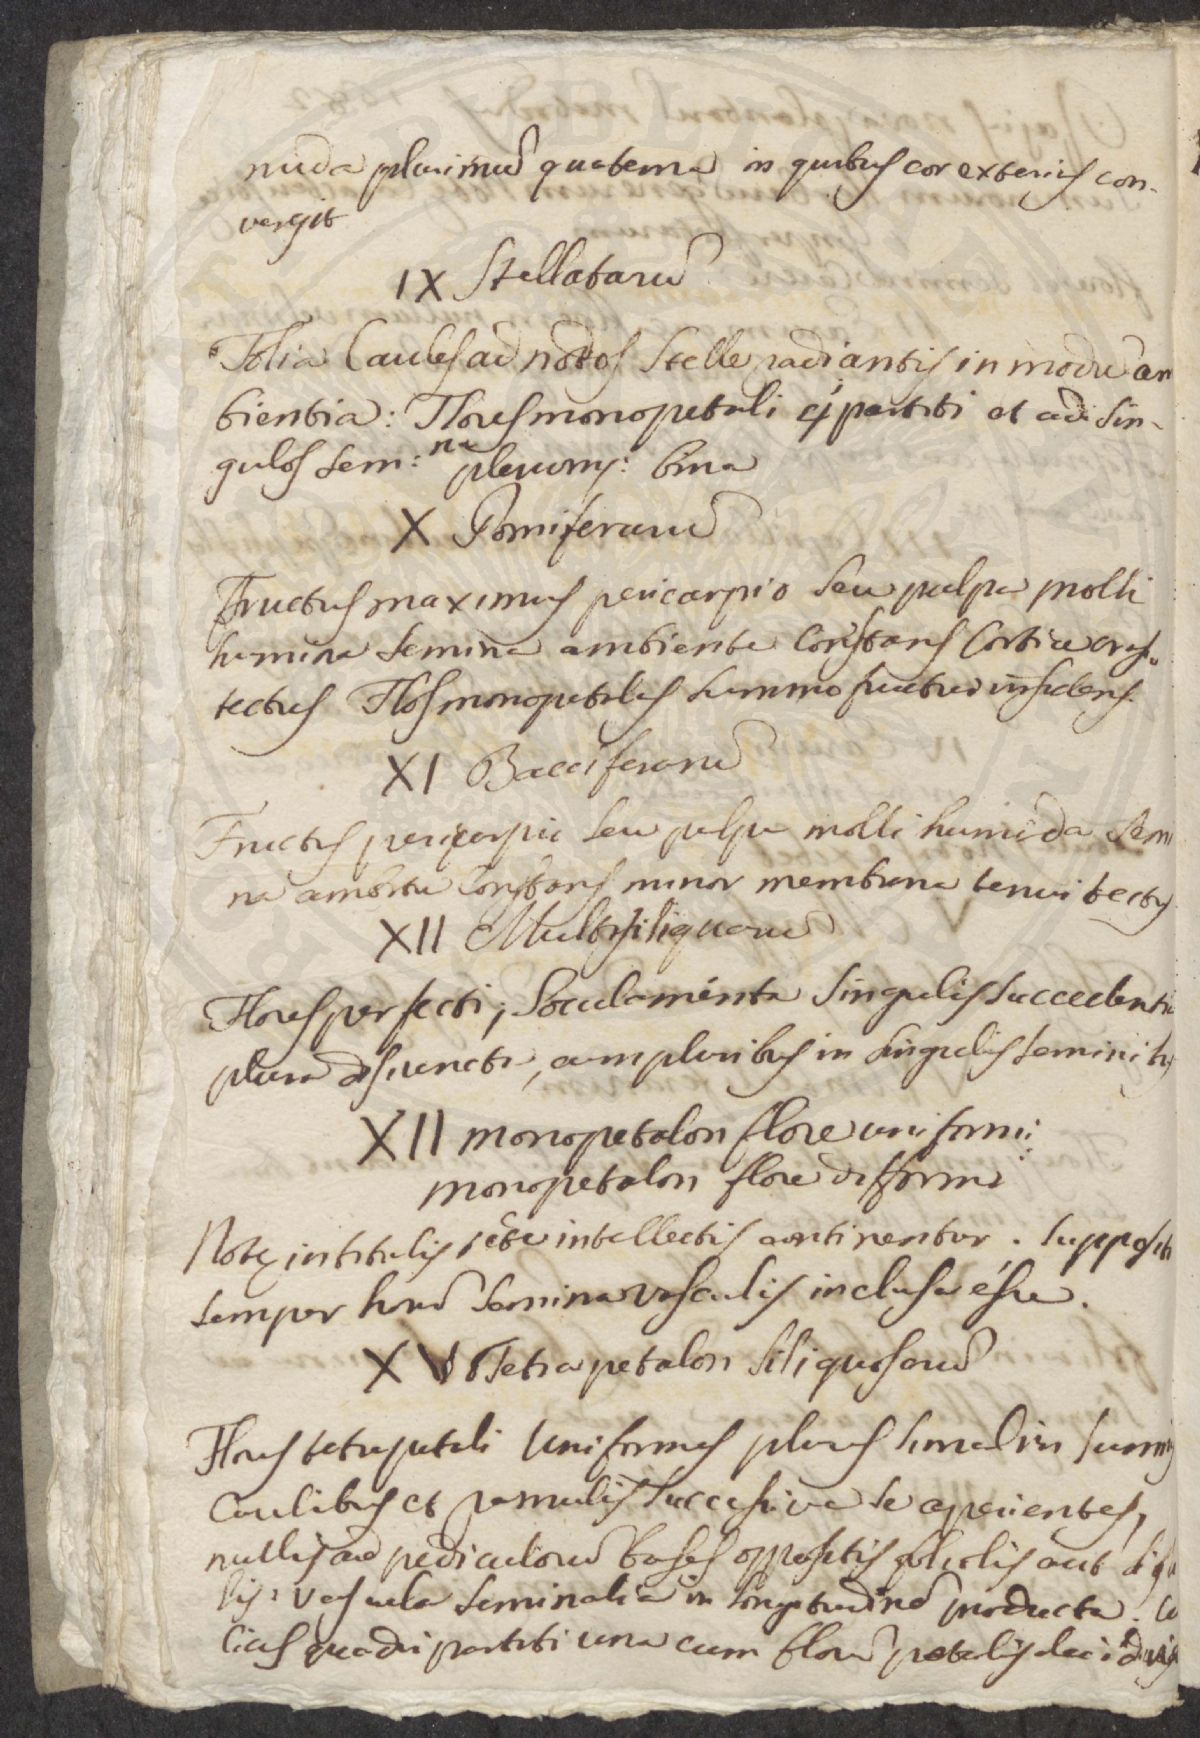 nuda plurimū quaterna in quibus cor exterius con-
vergit
IX Stellatarū
Folia Caules ad nodos Stelle radiantis in modū am
bientia: Flores monopetali 4partiti et ad sin-
gulos sem:na plerumq: bina
X Pomiferarū
Fructus maximus pericarpio seu pulpa molli
humida semina ambiente Constans Cortice cras.
tectus Flos monopetalus summo fructui insidens.
XI Bacciferarū
Fructus pericarpio seu pulpa molli humida Semi
na ambitu Constans minor membrana tenui tectus
XII Multisiliquarū
Flores perfecti; Loculamenta singulis succedentia
plura disjuncta, cum pluribus in singulis seminibus
XII monopetalon flore uniformi:
monopetalon flore difformi
Notę in titulis recte intellectis continentur. supposito
semper horū semina vasculis inclusa esse.
XV Tetrapetalon Siliquosarū
Flores tetrapetali Uniformes plures simul in summis
Caulibus et ramulis successive se aperientes,
nullis ad pediculorū bases oppositis foliolis aut
lis: Vascula seminalia in longitudinē producta. Ca
lices quadripartiti una cum florū petalis deciduis